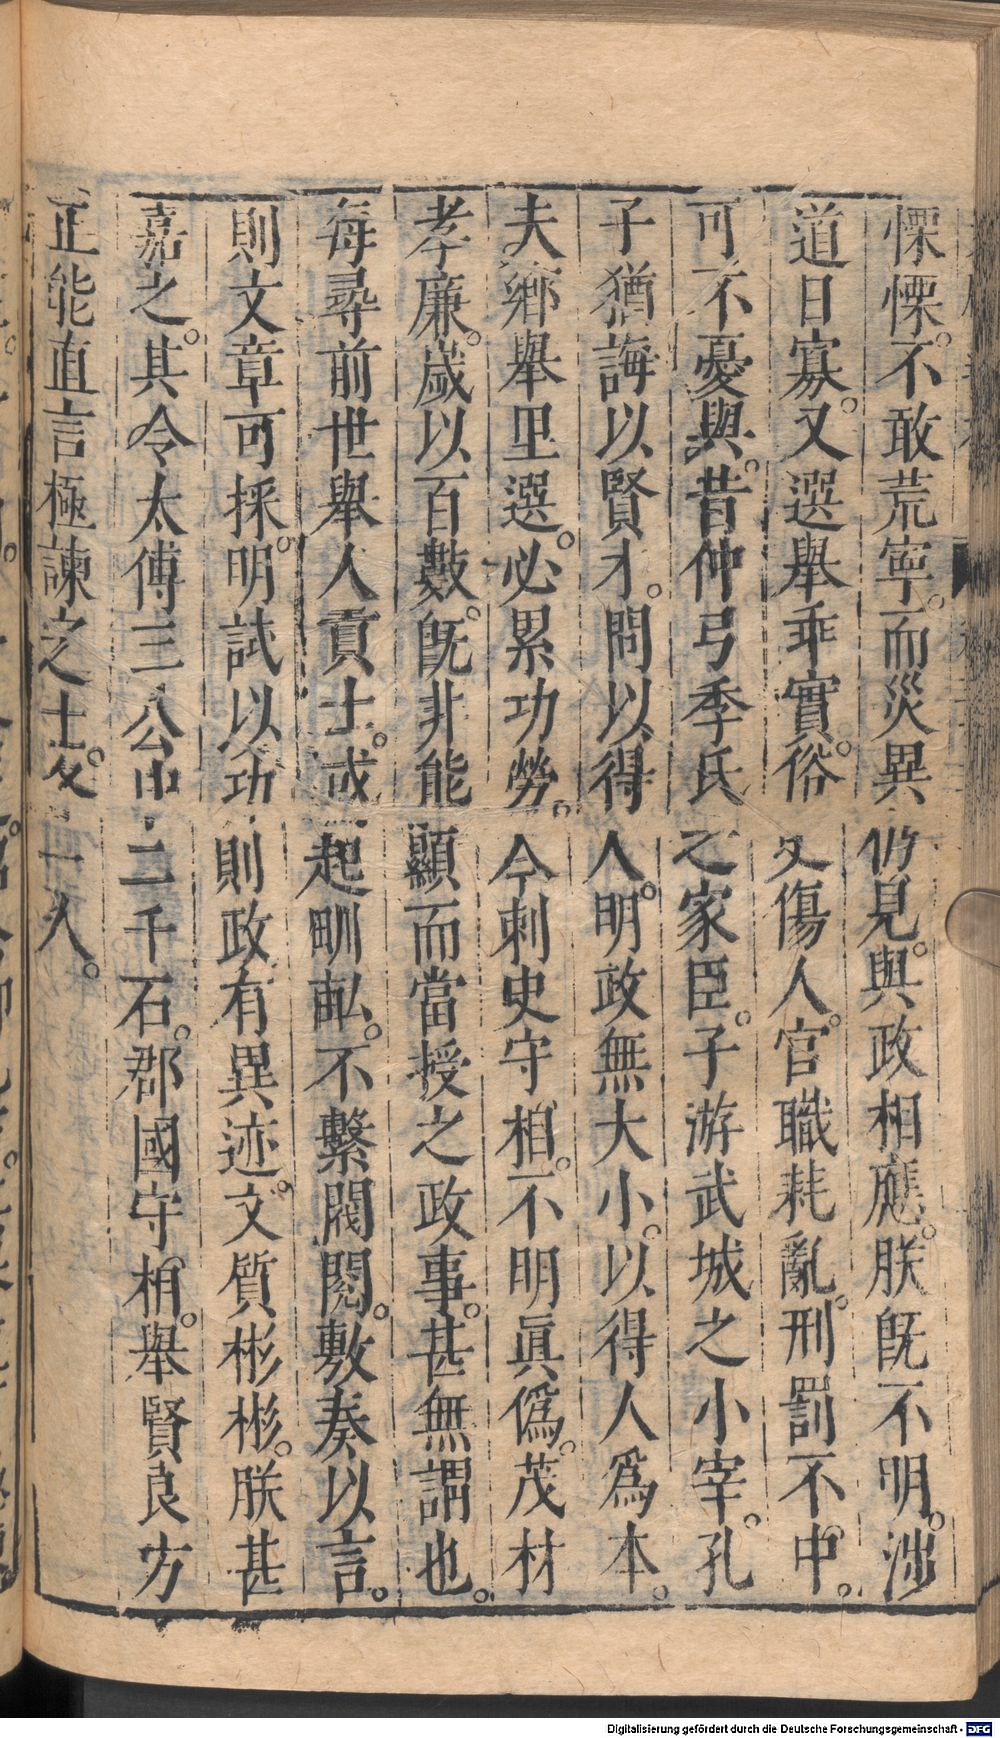 慄慄。不敢荒寧。而災異仍見。與政相應。朕既不明。涉
道日寡。又選舉乖實。俗吏傷人。官職耗亂。刑罰不中。
可不憂與。昔仲弓季氏之家臣。子游武城之小宰。孔
子猶誨以賢才。問以得人。明政無大小。以得人爲本。
夫鄉舉里選。必累功勞。今刺史守相。不明眞僞。茂材
孝廉。歲以百數。既非能顯。而當授之政事。甚無謂也。
每尋前世舉人貢士。或起甽畝。不繫閥閱。敷奏以言。
則文章可採。明試以功。則政有異迹。文質彬彬。朕甚
嘉之。其令太傅三公中二千石。郡國守相。舉賢良方
正能直言極諫之士。各一人。
Digitalisierung gefördert durch die Deutsche Forschungsgemeinschaft - DFG